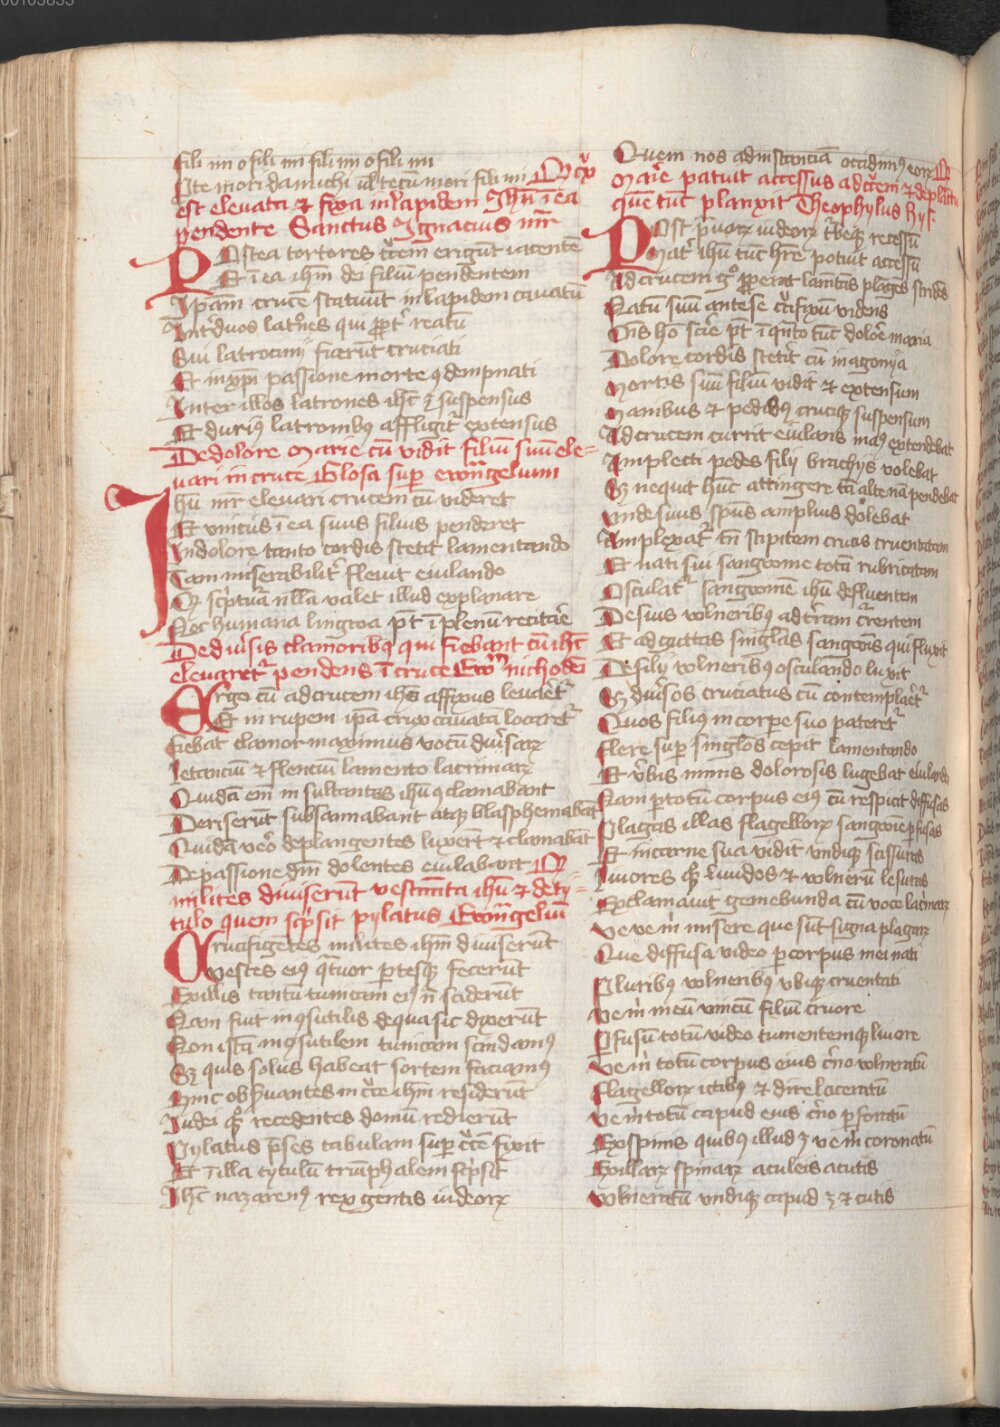 fili mi o fili mi fili mi o fili mi
Pte mori da michi ul̄ tecū mori fili mi Q̄ cͬx
est eleuata ⁊ fixa in lapidem Ihm̄ ī ea
pendente Sanctus Ignacius mr̄
Postea tortores cͬcem erigūt iacentē
Et ī ea ihm̄ dei filiuꝫ pendentem
Ipam̄ cruce statuūt in lapidem cauatū
Int̓ duos lat̓nes qui ꝓpt̓ reatū
Sui latrocinij fuerūt cruciati
Et in xp̄i passione morte ꝯdempnati
Inter illos latrones ihc̄ suspensus
Et duriꝰ latronibus affligit̓ extensus
De dolore Marie cū vidit filiū suū ele-
uari in cruce Glosa sup̄ ewāgelium
Ihū mr̄ eleuari crucem cū videret
Et vinctus ī ea suus filius penderet
In dolore tanto cordis stetit lamentando
Tam miserabilit̓ fleuit eiulando
Qͫ sc̓ptura nlla valet illud explanare
Nec humana lingwa pt̄ ī plenū recitare
De diūsis clamoribꝰ qui fiebant cū ihc̄
eleuaret̓ pendens ī cruce Ewāᵐ nichodēi
Ergo cū ad crucem ihs̄ affixus leuaret̓
Et in rupem ipa crux cauatā locaret̓
fiebat clamor maximus vocū diūsaꝝ
Letanciū ⁊ flenciū lamento lacrimaꝝ
Quidā em̄ insultantes ihū ꝯclamabant
Deriserūt subsannabant atqꝫ blasphemabāt
Quidā ueō deplangentes luxerūt ⁊ clamabāt
De passione dm̄ dolentes eiulabant Q̄
milites diuiserūt vestimenta ihū ⁊ de ty-
tulo quem scͥpsit pylatus Ewāgeliū
Crucifigētes milites ihm̄ diuiserūt
vestes eiꝰ qͣtuor ꝑtesqꝫ fecerūt
Ex illis tantū tunicam eiꝰ n̄ sciderūt
Nam fuit incōsutilis de qua sic dixerūt
Non istā incōsutilem tunicam scindamꝰ
Sꝫ quis solus habeat sortem faciamꝰ
Hinc obs̓uantes in cͬce ihm̄ residerūt
Iudei qͦqꝫ recedentes domū redierūt
Pylatus p̄ses tabulam sup̄ cͬce fixit
Et ī illa tytulū triūphalem scͥpsit
Ihc̄ nazarenꝰ rex gentis iudeoꝝ
Quem nos ad instanciā occidimꝰ eoꝝ De
Marie patuit accessus ad cͬcem ⁊ de plāctu
quē tūc planxit Theophylus
Post furorꝫ iudeoꝝ recessū
Mat̓ ihū tūc hr̄e potuit accessū
Ad crucem gͦ ꝓperat lamētās plāgēs stridēs
Natū suū ante se cͬcifixū videns
Om̄s hō scire pt̄ ī qnto tūc dolore maria
Dolore cordis stetit cū in agonija
Mortis suū filiū vidit ⁊ extensum
Manibus ⁊ pedibꝰ cruciqꝫ suspensum
Ad crucem currit eiulans manꝰ extendebat
Amplecti pedes filij brachijs volebat
Sꝫ nequit hūc attingere tā alte nā pendebat
vnde suus spūs amplius dolebat
Amplexat̓ tn̄ stipitem crucis cruentatam
Et nati sui sangwine totū rubricatam
Osculat̓ sangwinē ihū defluentem
De suis volneribus ad t̓ram cͬrentem
Et ad guttas singlas sangwīs qui fluxit
De filij volneribꝰ osculando luxit
Sꝫ diūsos cruciatus cū contemplaret̓
Quos filiꝰ in corpe suo pateret̓
flere sup̄ singlos cepit lamentando
Et v̓bis nimis dolorosis lugebat eiulando
Nam ꝑ totū corpus eiꝰ cū respicit diffusas
Plagas illas flagelloꝝ sangwine ꝑfusas
Et in carne sua vidit vndiqꝫ scissuras
liuores qͦqꝫ liuidos ⁊ volnerū lesuras
Exclamauit gemebunda cū voce lacͥmaꝝ
ve ve m̄ misere que sūt signa plagaꝝ
Que diffusa video ꝑ corpus mei nati
Pluribꝰ volneribus vbiqꝫ cruentati
ve m̄ meū vnicū filiū cruore
Ꝑfusū totū video tumentemqꝫ liuore
ve m̄ totū corpus eius cͬno volneratū
flagelloꝝ ictibꝰ ⁊ dire laceratū
ve m̄ totū capud eius cͬno ꝑforatū
Ex spinis quibꝰ illud ꝫ ve m̄ coronatū
Ex illaꝝ spinaꝝ aculeis acutis
volneratū vndiqꝫ capud ꝫ ⁊ cutis